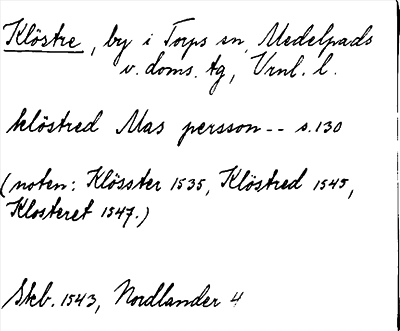 Klöstre, by i Torps sn, Medelpads
v. doms. tg, Vrnl. l.
klöstred Mas persson -- s. 130
(noten: Klösster 1535, Klöstred 1545,
Klosteret 1547.)
Skb. 1543, Nordlander 4